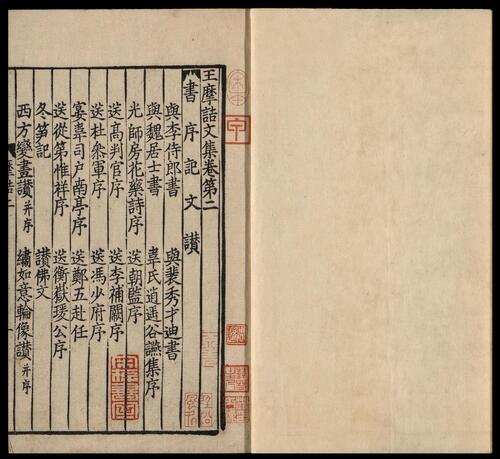 王摩詰文集卷第二
書 序 記 文 讃
與李侍郎書 與裴秀才迪書
與魏居士書 韋氏逍遥谷讌集序
光師房花藥詩序 送朝監序
送髙判官序 送李補闕序
送杜叅軍序 送馮少府序
宴韋司户南亭序 送鄭五赴任
送從弟惟祥序 送衡嶽瑗公序
冬笋記 讃佛文
西方變畫讃并序 繡如意輪像讃并序
摩詰二